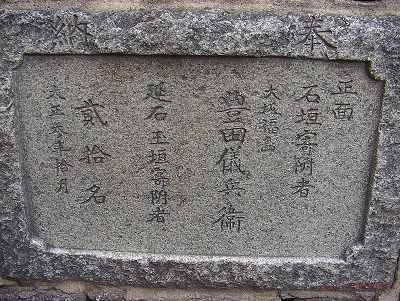 奉納
正面
石垣寄附者
大阪福島
豊田儀兵衛
延石玉垣寄附者
貳拾名
大正六年拾月